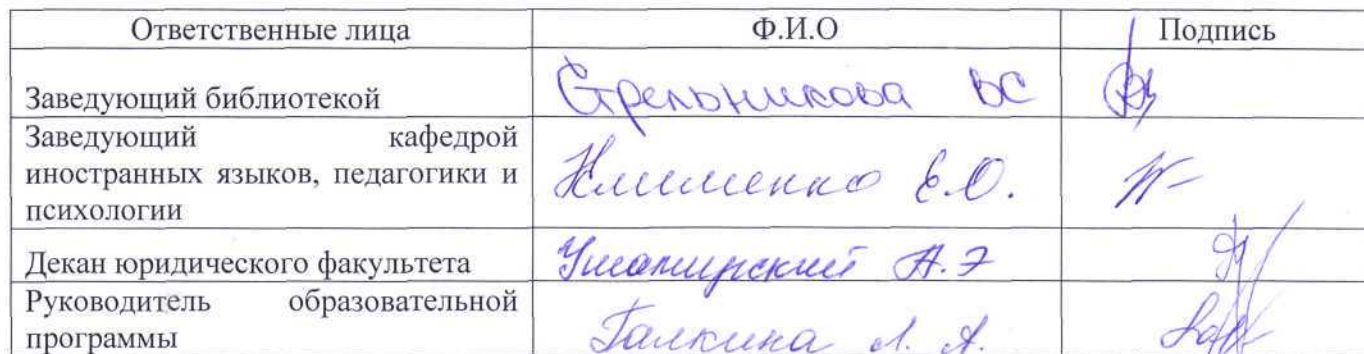 Ответственные лица Ф.И.О Подпись
Заведующий библиотекой Стрельникова ВС
Заведующий кафедрой
иностранных языков, педагогики и
психологии
Клименко Е.О.
Декан юридического факультета А.Э
Руководитель образовательной
программы
Галкина Л. А.